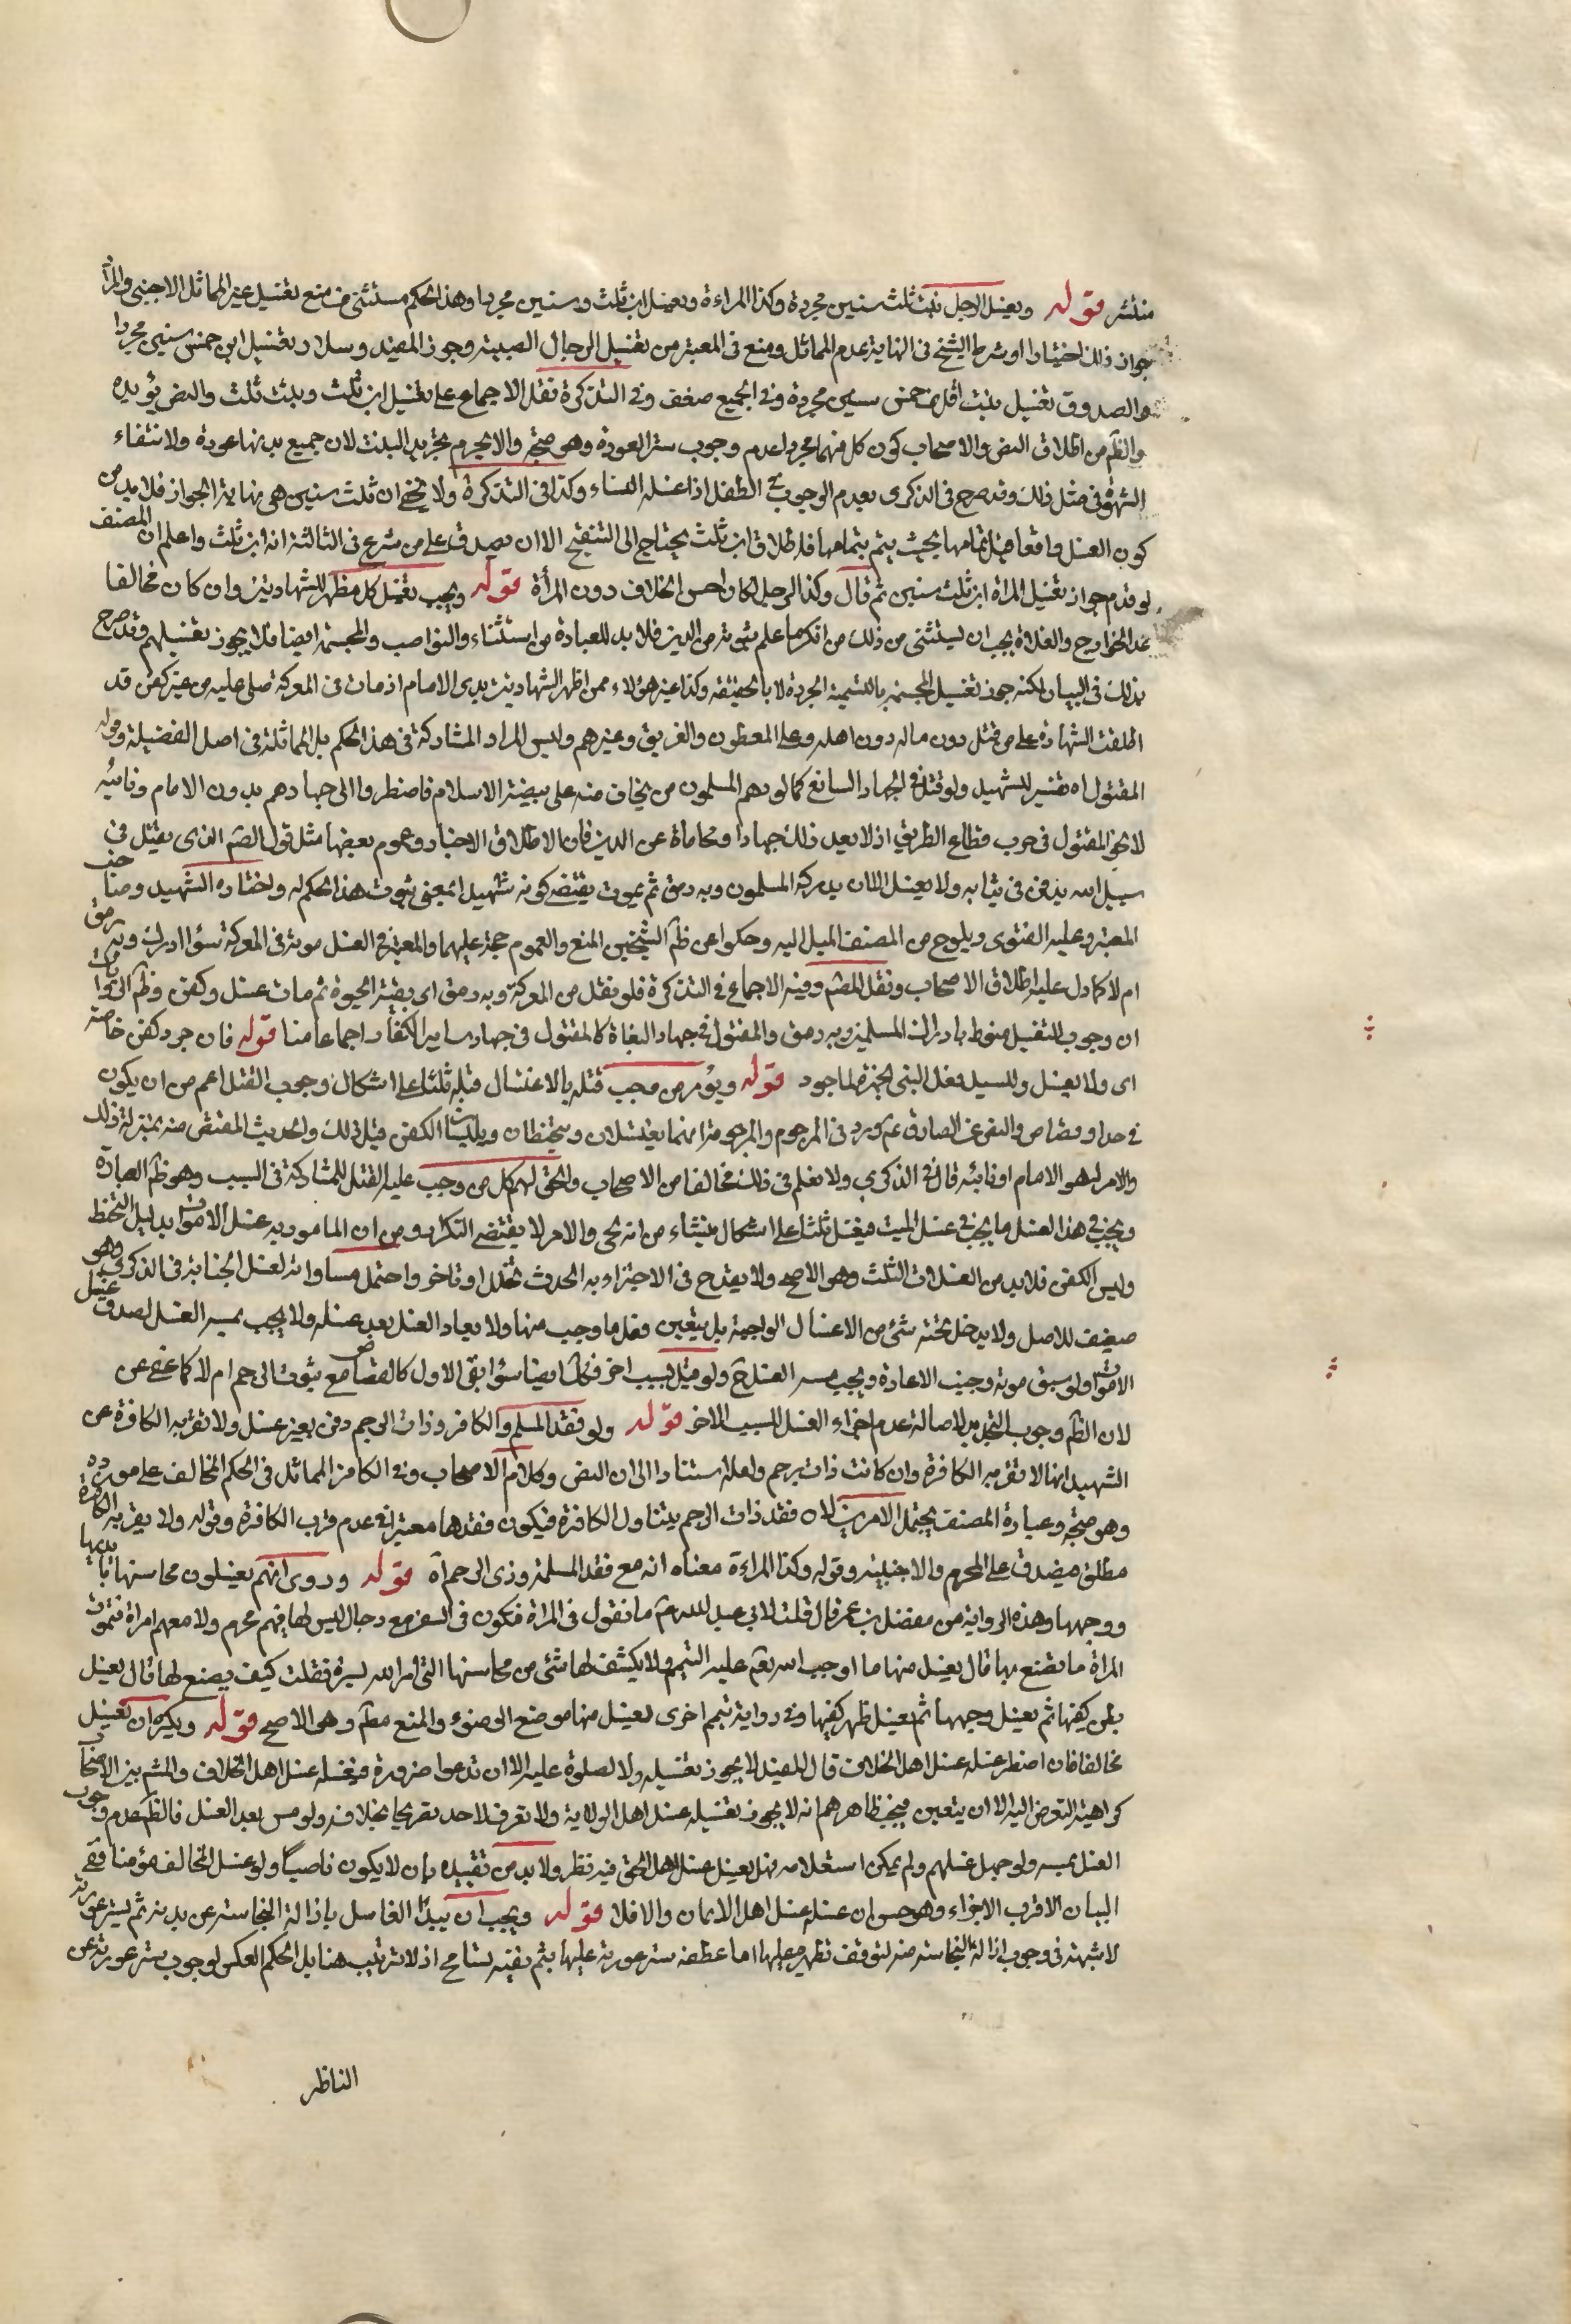 منتشر قوله ويغسل الرجل بنت ثلث سنين مجردة وكذا المراءة ويغسل ابن ثلث سنين مجردا وهذا الحكم مستثنى من منع تغسيل غير المماثل الاجنبى والمرا
جواز ذلك اختيارا وشرط الشيخ فى النهاية عدم المماثل ومنع فى المعتبر من تغسيل الرجال الصبية وجوز المفيد وسلار تغسيل ابن خمس سنين مجردا
والصدوق تغسيل بنت اقل من خمس سنين مجردة وفى الجميع ضعف وفى التذكرة نقل الاجماع على تغسيل ابن ثلث وبنت ثلث والنص يؤيده
والظم من اطلاق النص والاصحاب كون كل منهما مجردا عدم وجوب ستر العورة وهو متجه والا لحرم تجريد البنت لان جميع بدنها عورة ولانتفاء
الشهوة فى مثل ذلك وقد صرح فى الذكرى بعدم الوجوب فى الطفل اذا غسله النساء وكذا فى التذكرة ولا يخفى ان ثلث سنين هى نهاية الجواز فلا بد من
كون الغسل واقعا قبل تمامها بحيث يتم بتمامها فاطلاق ابن ثلث يحتاج الى التنقيح الا ان يصدق على من شرع فى الثالثة انه ابن ثلث واعلم ان المصنف
لو قدم جواز تغسيل المراة ابن ثلث سنين ثم قال وكذا الرجل لكان احسن الخلاف دون المرأة قوله ويجب تغسيل كل مظهر للشهادتين وان كان مخالفا
عدا الخوارج والغلاة يجب ان يستثنى من ذلك من انكر ما علم ثبوته من الدين فلا بد للعبارة من استثناء والنواصب والمجسمة ايضا فلا يجوز تغسيلهم وقد صرح
بذلك فى البيان لكنه جوز تغسيل المجسمة بالتسمية المجردة لا بالحقيقة وكذا غير هؤلاء ممن اظهر الشهادتين بدى الامام اذ مات فى المعركة صلى عليه من غير كفن قد
اطلقت الشهادة على من قتل دون ماله دون اهله وعلى المطعون والغريق وغيرهم وليس المراد المشاركة فى هذا الحكم بل المماثلة فى اصل الفضيلة وقوله
المقتول اه تفسير للشهيد ولو قتل فى الجهاد السائغ كما لو دهم المسلمون من يخاف منه على بيضة الاسلام فاضطروا الى جهادهم بدون الامام ونائبه
لا نحو المقتول فى حرب قطاع الطريق اذ لا يعد ذلك جهادا ومحاماة عن الدين فان الاطلاق الاخبار وعموم بعضها مثل قول الصم الذى يقتل فى
سبيل الله يدفن فى ثيابه ولا يغسل الا ان يدركه المسلمون وبه رمق ثم يموت يقتضى كونه شهيدا بمعنى ثبوت هذا الحكم له واختاره الشهيد وصاحب
المعتبر وعليه الفتوى ويلوح من المصنف الميل اليه وحكوا عن ظم الشيخين المنع والعموم حجة عليهما والمعتبر فى الغسل موته فى المعركة سواء ادرك وبه رمق
ام لا كما دل عليه اطلاق الاصحاب ونقل المصم وفيه الاجماع فى التذكرة فلو نقل من المعركة وبه رمق اى بقية الحيوة ثم مات غسل وكفن وظم الروايات
ان وجوب التغسيل منوط بادراك المسلمين وبه رمق والمقتول فى جهاد البغاة كالمقتول فى جهاد ساير الكفار اجماعا منا قوله فان جرد كفن خاصة
اى ولا يغسل والسبيل فعل النبى بحمزة لما جرد قوله ويؤمر من وجب قتله بالاغتسال قبله ثلثا على اشكال وجوب القتل اعم من ان يكون
فى حد او قصاص والنص عن الصادق عم ورد فى المرجوم والمرجومة انهما يغتسلان ويتحنطان ويلبسان الكفن قبل ذلك والحديث المقتص منه بمنزلة ذلك
والامر له هو الامام او نائبه قال فى الذكرى ولا نعلم فى ذلك مخالفا من الاصحاب والحق لهم كل من وجب عليه القتل للمشاركة فى السبب وهو ظم العبارة
ويجب فى هذا الغسل ما يجب فى غسل الميت فيغسل ثلثا على اشكال ينشاء من انه حى والامر لا يقتضى التكرار ومن ان المامور به غسل الاموات بدليل التحنط
ولبس الكفن فلا بد من الغسلات الثلث وهو الاصح ولا يقدح فى الاجتزاء به الحدث تخلل او تاخر واحتمل مساواته لغسل الجنابة فى الذكرى وهو
ضعيف للاصل ولا يدخل تحته شىء من الاغسال الواجبة بل يتعين فعل ما وجب منها ولا يعاد الغسل بعد غسله ولا يجب بمسه الغسل لصدق غسل
الاموات ولو سبق موته وجبت الاعادة ويجب بمسه الغسل ح ولو قتل بسبب اخر فكك ايضا سواء بقى الاول كالقصاص مع ثبوت الرجم ام لا كما عفى عن
لان الظم وجوب التجديد لاصالة عدم اجزاء الغسل للسبب الاخر قوله ولو فقد المسلم والكافر وذات الرحم دفن بغير غسل ولا تقربه الكافرة عن
الشهيد انها لا تقربه الكافرة وان كانت ذات رحم ولعله استنادا الى ان النص وكلام الاصحاب وفى الكافر المماثل فى الحكم المخالف على مورده
وهو متجه وعبارة المصنف يحتمل الامرين لان فقد ذات الرحم يتناول الكافرة فيكون فقدها معتبرا فى عدم قرب الكافرة وقوله ولا يقربه الكافرة
مطلق فيصدق على المحرم والاجنبية وقوله وكذا المراءة معناه انه مع فقد المسلمة وذى الرحم اه قوله وروى انهم يغسلون محاسنها يديها
ووجهها وهذه الرواية من مفضل بن عمر قال قلت لابى عبد الله عم ما تقول فى المراة فتكون فى السفر مع رجال ليس لها فيهم محرم ولا معهم امراة فتموت
المراة ما يصنع بها قال يغسل منها ما اوجب الله تعم عليه التيمم ولا يكشف لها شىء من محاسنها التى امر الله بستره فقلت كيف يصنع لها قال يغسل
بطن كفيها ثم يغسل وجهها ثم يغسل ظهر كفيها وفى رواية تيمم اخرى يغسل منها موضع الوضوء والمنع مطم وهى الاصح قوله ويكره ان يغسل
مخالفا فان اضطر غسله غسل اهل الخلاف قال المفيد لا يجوز تغسيله ولا الصلوة عليه الا ان تدعوا ضرورة فيغسله غسل اهل الخلاف والمشم بين الاصحاب
كراهية التعرض اليه الا ان يتعين فيجب ظاهرهم انه لا يجوز تغسيله غسل اهل الولاية ولا نعرف لاحد تصريحا بخلافه ولو مس بعد الغسل فالظم عدم وجوب
الغسل بمسه ولو جهل غسلهم ولم يمكن استعلامه فهل يغسل غسل اهل الحق فيه نظر ولا بد من تقييده بان لا يكون ناصبيا ولو غسل المخالف مؤمنا ففى
البيان الاقرب الاجزاء وهو حسن ان غسله غسل اهل الايمان والا فلا قوله ويجب ان يبدأ الغاسل بازالة النجاسة عن بدنه ثم يستر عورته
لا شبهة فى وجوب ازالة النجاسة منه لتوقف تطهيره عليها اما عطف ستر عورته عليها بثم ففيه تسامح اذ لا ترتيب هنا بل الحكم العكس لوجوب ستر عورته عن
الناظر